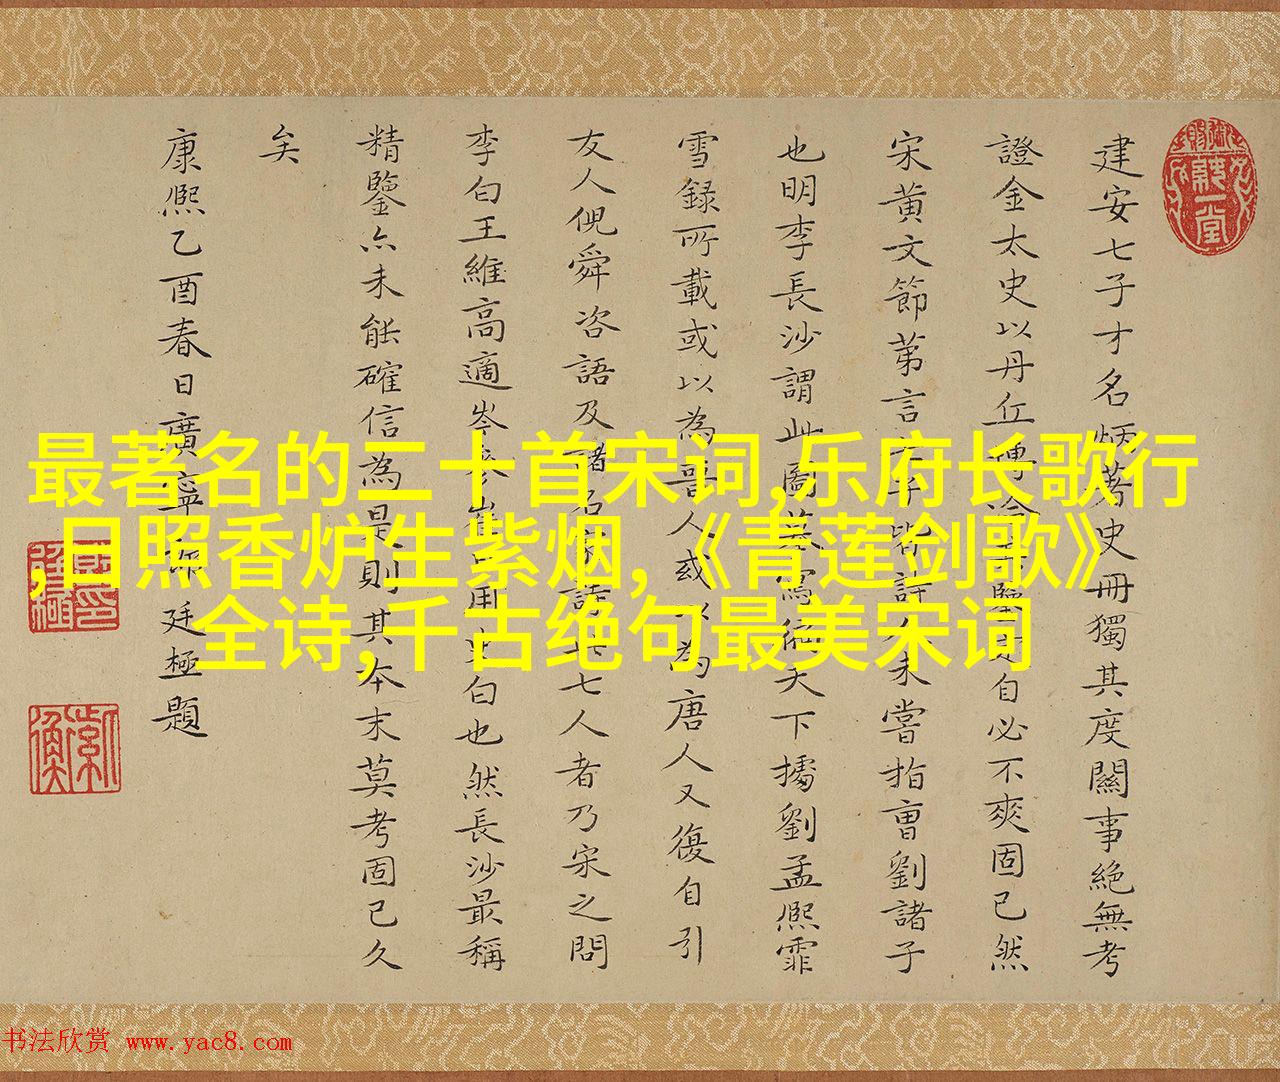 建安七子才名炳著史冊獨其度關事絕無考
證金太史以丹丘自必不爽固已然
宋黃文節第言皆詩人未嘗指曹劉諸子
也明李長沙謂此圖摹寫徧天下據劉孟熙霏
雪錄所載或以為晉人或以為唐人又復自引
友人倪舜咨語及諸名七人者乃宋之問
李白王維高適岑參崔史白也然長沙最稱
精鑒亦未能確信為是則其本末莫考固已久
矣
康熙乙酉春日廣寧郎廷極題
紫衡
最著名的二十首宋词,乐府长歌行
,日照香炉生紫烟,《青莲剑歌》
全诗,千古绝句最美宋词
书法欣赏 www.yac8.com